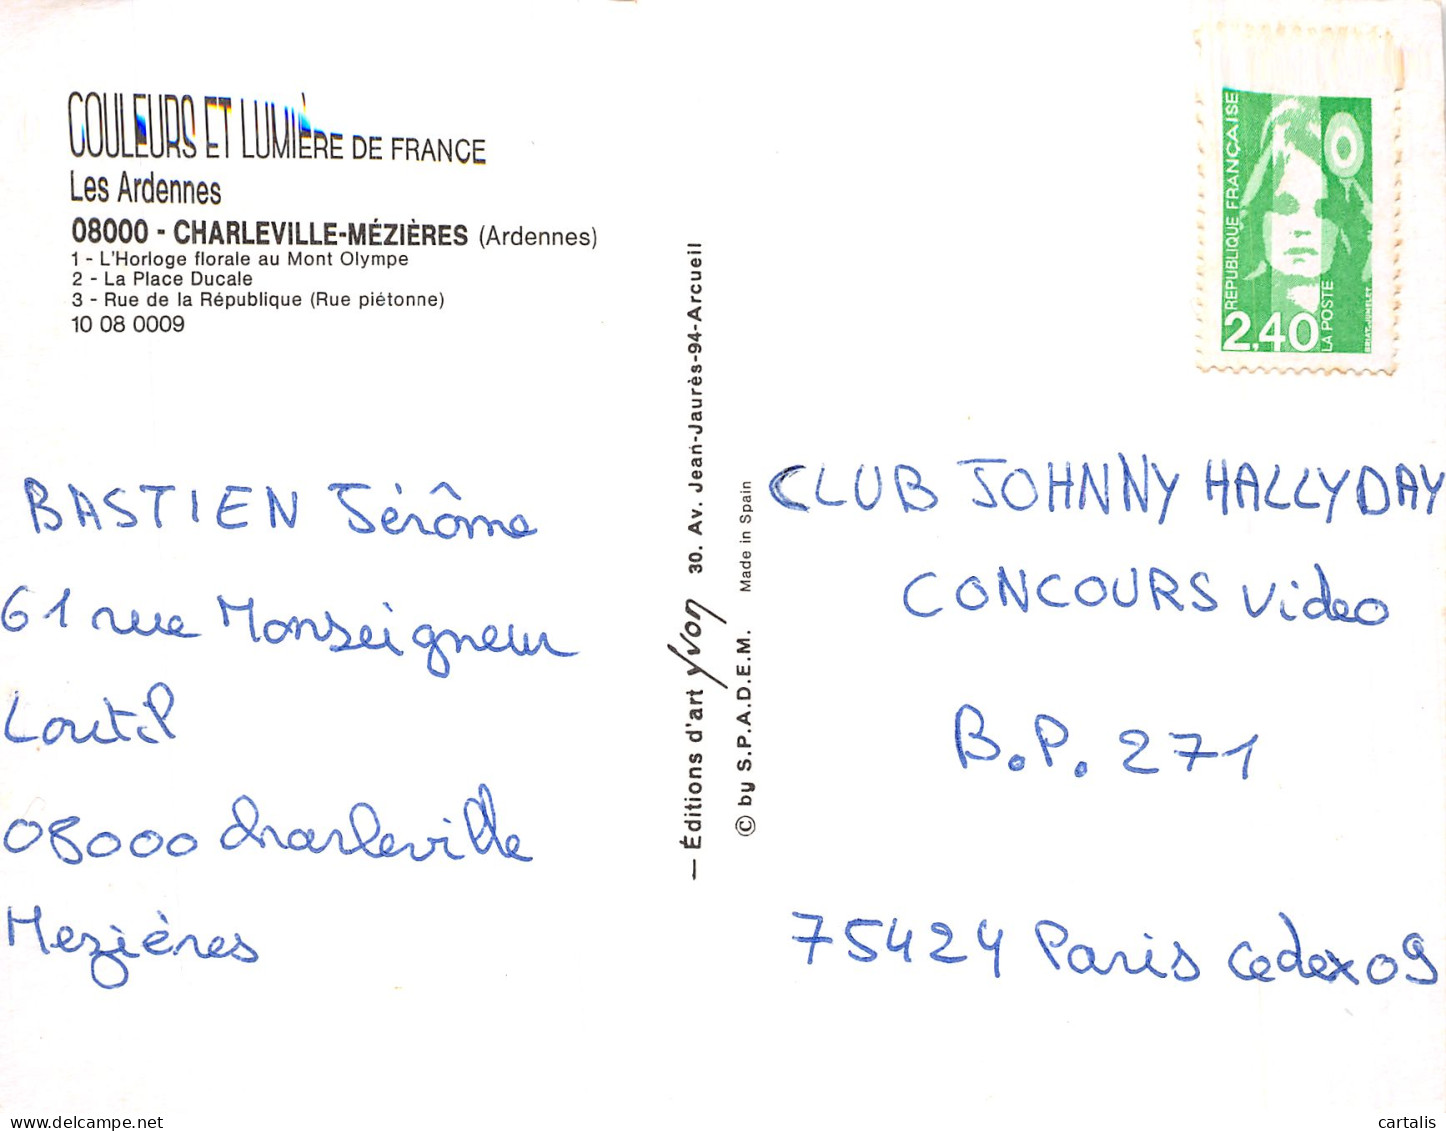 COULEURS ET LUMIÈRE DE FRANCE
Les Ardennes
08000 - CHARLEVILLE-MÉZIÈRES (Ardennes)
1 - L'Horloge florale au Mont Olympe
2 - La Place Ducale
3 - Rue de la République (Rue piétonne)
10 08 0009
BASTIEN Jérôme
61 rue Monseigneur
Loutil
08000 charleville
Mezières
— Éditions d'art yvon 30. Av. Jean-Jaurès-94-Arcueil
© by S.P.A.D.E.M. Made in Spain
REPUBLIQUE FRANÇAISE
2,40
LA POSTE
BRIAT-JUMELET
CLUB JOHNNY HALLYDAY
CONCOURS Video
B.P. 271
75424 Paris cedex 09
www.delcampe.net
cartalis